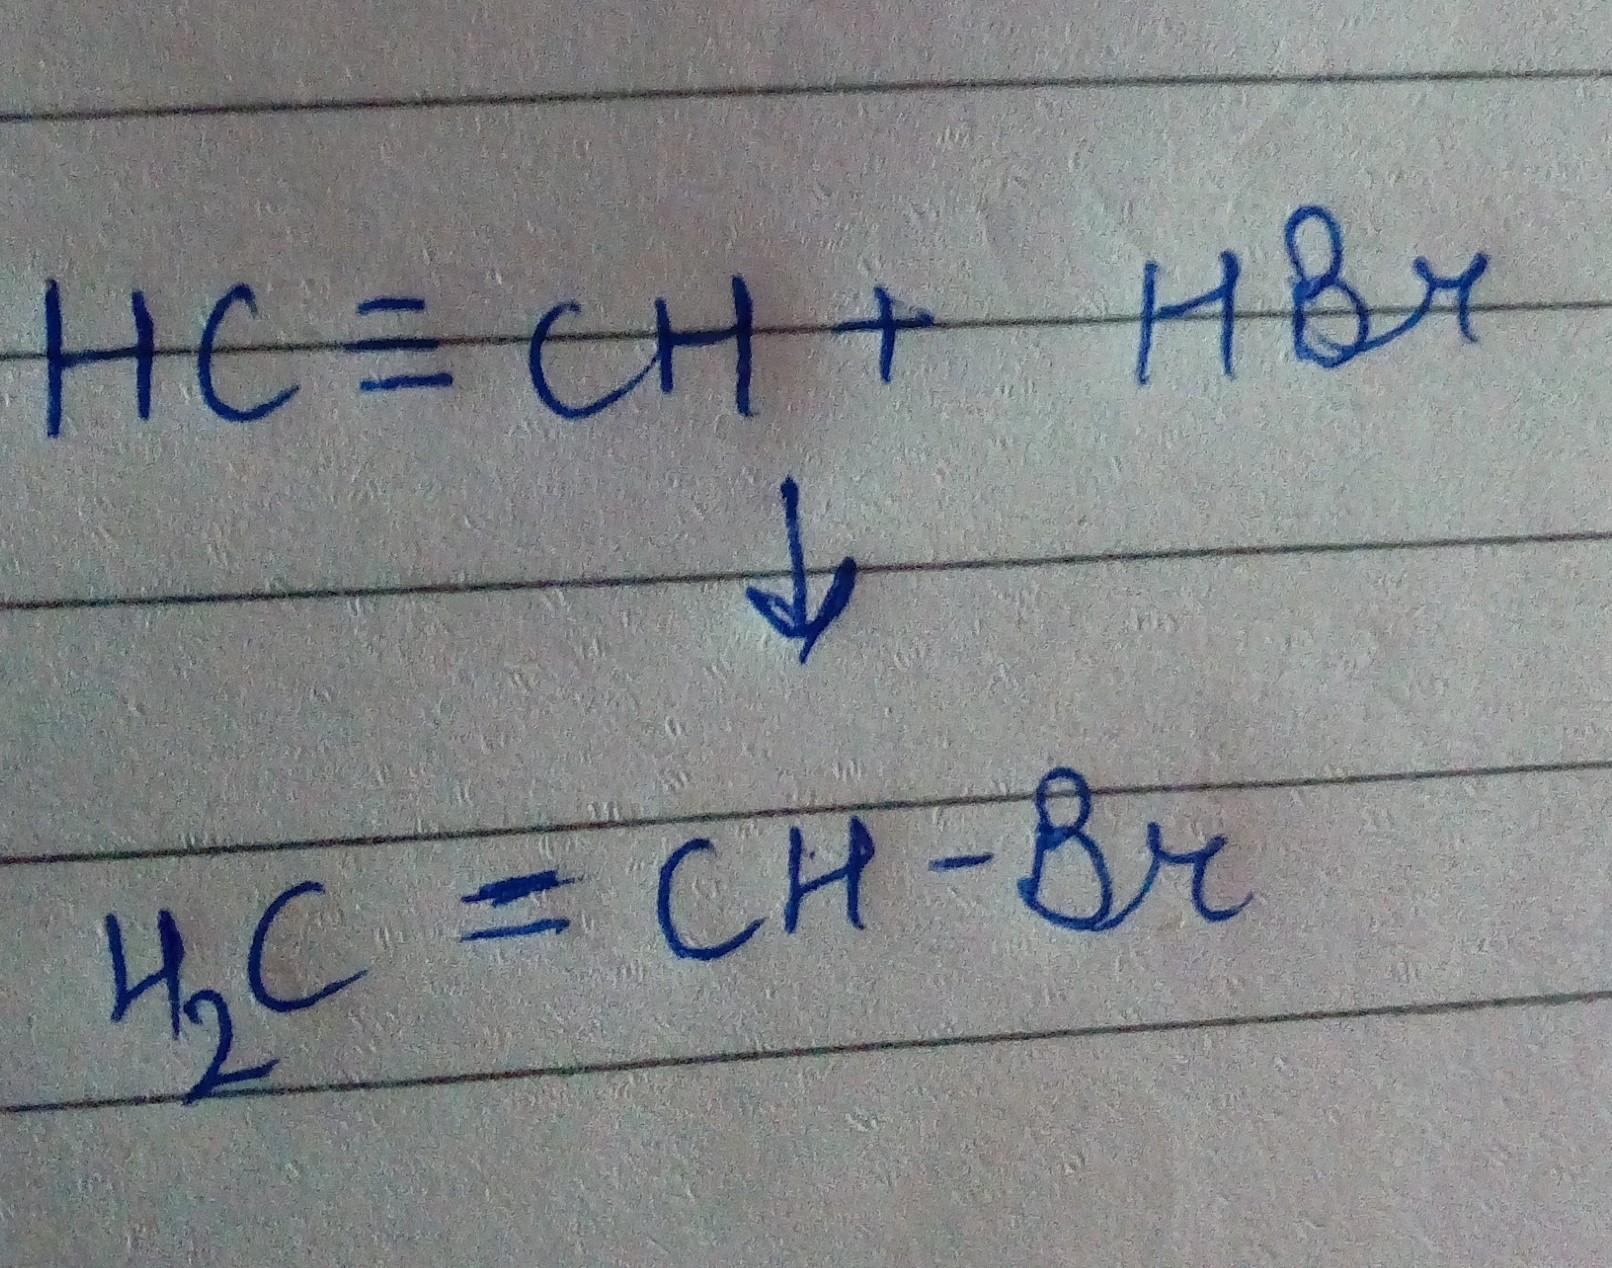 HC≡CH + HBr
↓
H₂C=CH-Br